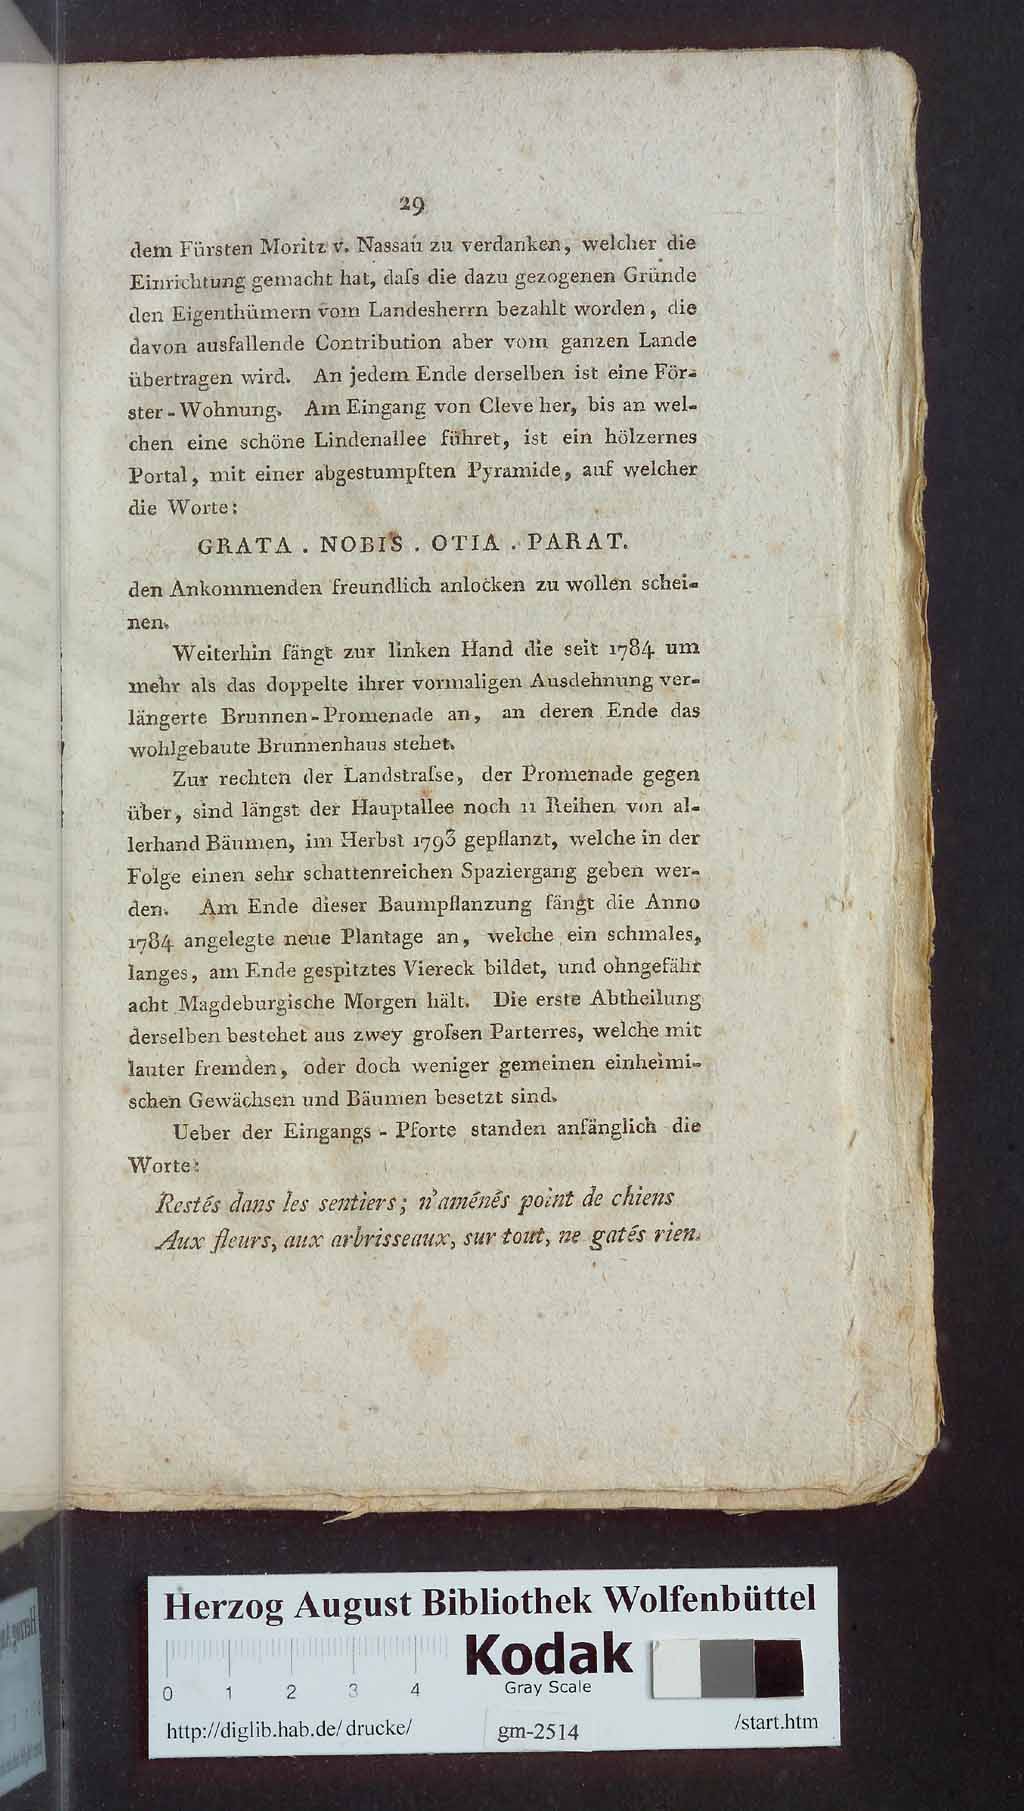 29
dem Fürsten Moritz v. Nassau zu verdanken, welcher die
Einrichtung gemacht hat, daſs die dazu gezogenen Gründe
den Eigenthümern vom Landesherrn bezahlt worden, die
davon ausfallende Contribution aber vom ganzen Lande
übertragen wird. An jedem Ende derselben ist eine För-
ster-Wohnung. Am Eingang von Cleve her, bis an wel-
chen eine schöne Lindenallee führet, ist ein hölzernes
Portal, mit einer abgestumpften Pyramide, auf welcher
die Worte:
GRATA . NOBIS . OTIA . PARAT.
den Ankommenden freundlich anlocken zu wollen schei-
nen.
Weiterhin fängt zur linken Hand die seit 1784 um
mehr als das doppelte ihrer vormaligen Ausdehnung ver-
längerte Brunnen-Promenade an, an deren Ende das
wohlgebaute Brunnenhaus stehet.
Zur rechten der Landstraſse, der Promenade gegen
über, sind längst der Hauptallee noch 11 Reihen von al-
lerhand Bäumen, im Herbst 1793 gepflanzt, welche in der
Folge einen sehr schattenreichen Spaziergang geben wer-
den. Am Ende dieser Baumpflanzung fängt die Anno
1784 angelegte neue Plantage an, welche ein schmales,
langes, am Ende gespitztes Viereck bildet, und ohngefähr
acht Magdeburgische Morgen hält. Die erste Abtheilung
derselben bestehet aus zwey groſsen Parterres, welche mit
lauter fremden, oder doch weniger gemeinen einheimi-
schen Gewächsen und Bäumen besetzt sind.
Ueber der Eingangs-Pforte standen anfänglich die
Worte:
Restés dans les sentiers; n'aménés point de chiens
Aux fleurs, aux arbrisseaux, sur tout, ne gatés rien.
Herzog August Bibliothek Wolfenbüttel
Kodak
Gray Scale
0 1 2 3 4
http://diglib.hab.de/drucke/ gm-2514 /start.htm